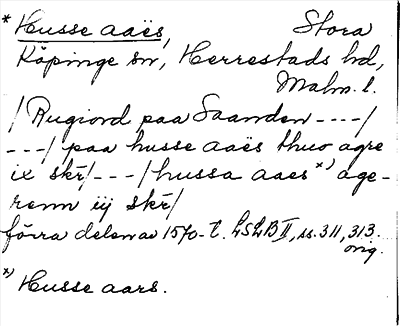 * Husse aaës, Stora
Köpinge sn, Herrestads hd,
Malm. l.
/Rugiord paa Saanden ----/
---/ paa husse aaës thuo agre
ix skr̃/---/hussa aaes x) age-
renn iij skr̃/
förra delen av 1570-t. LSLB II, ss. 311, 313.
orig.
x) Husse aars.